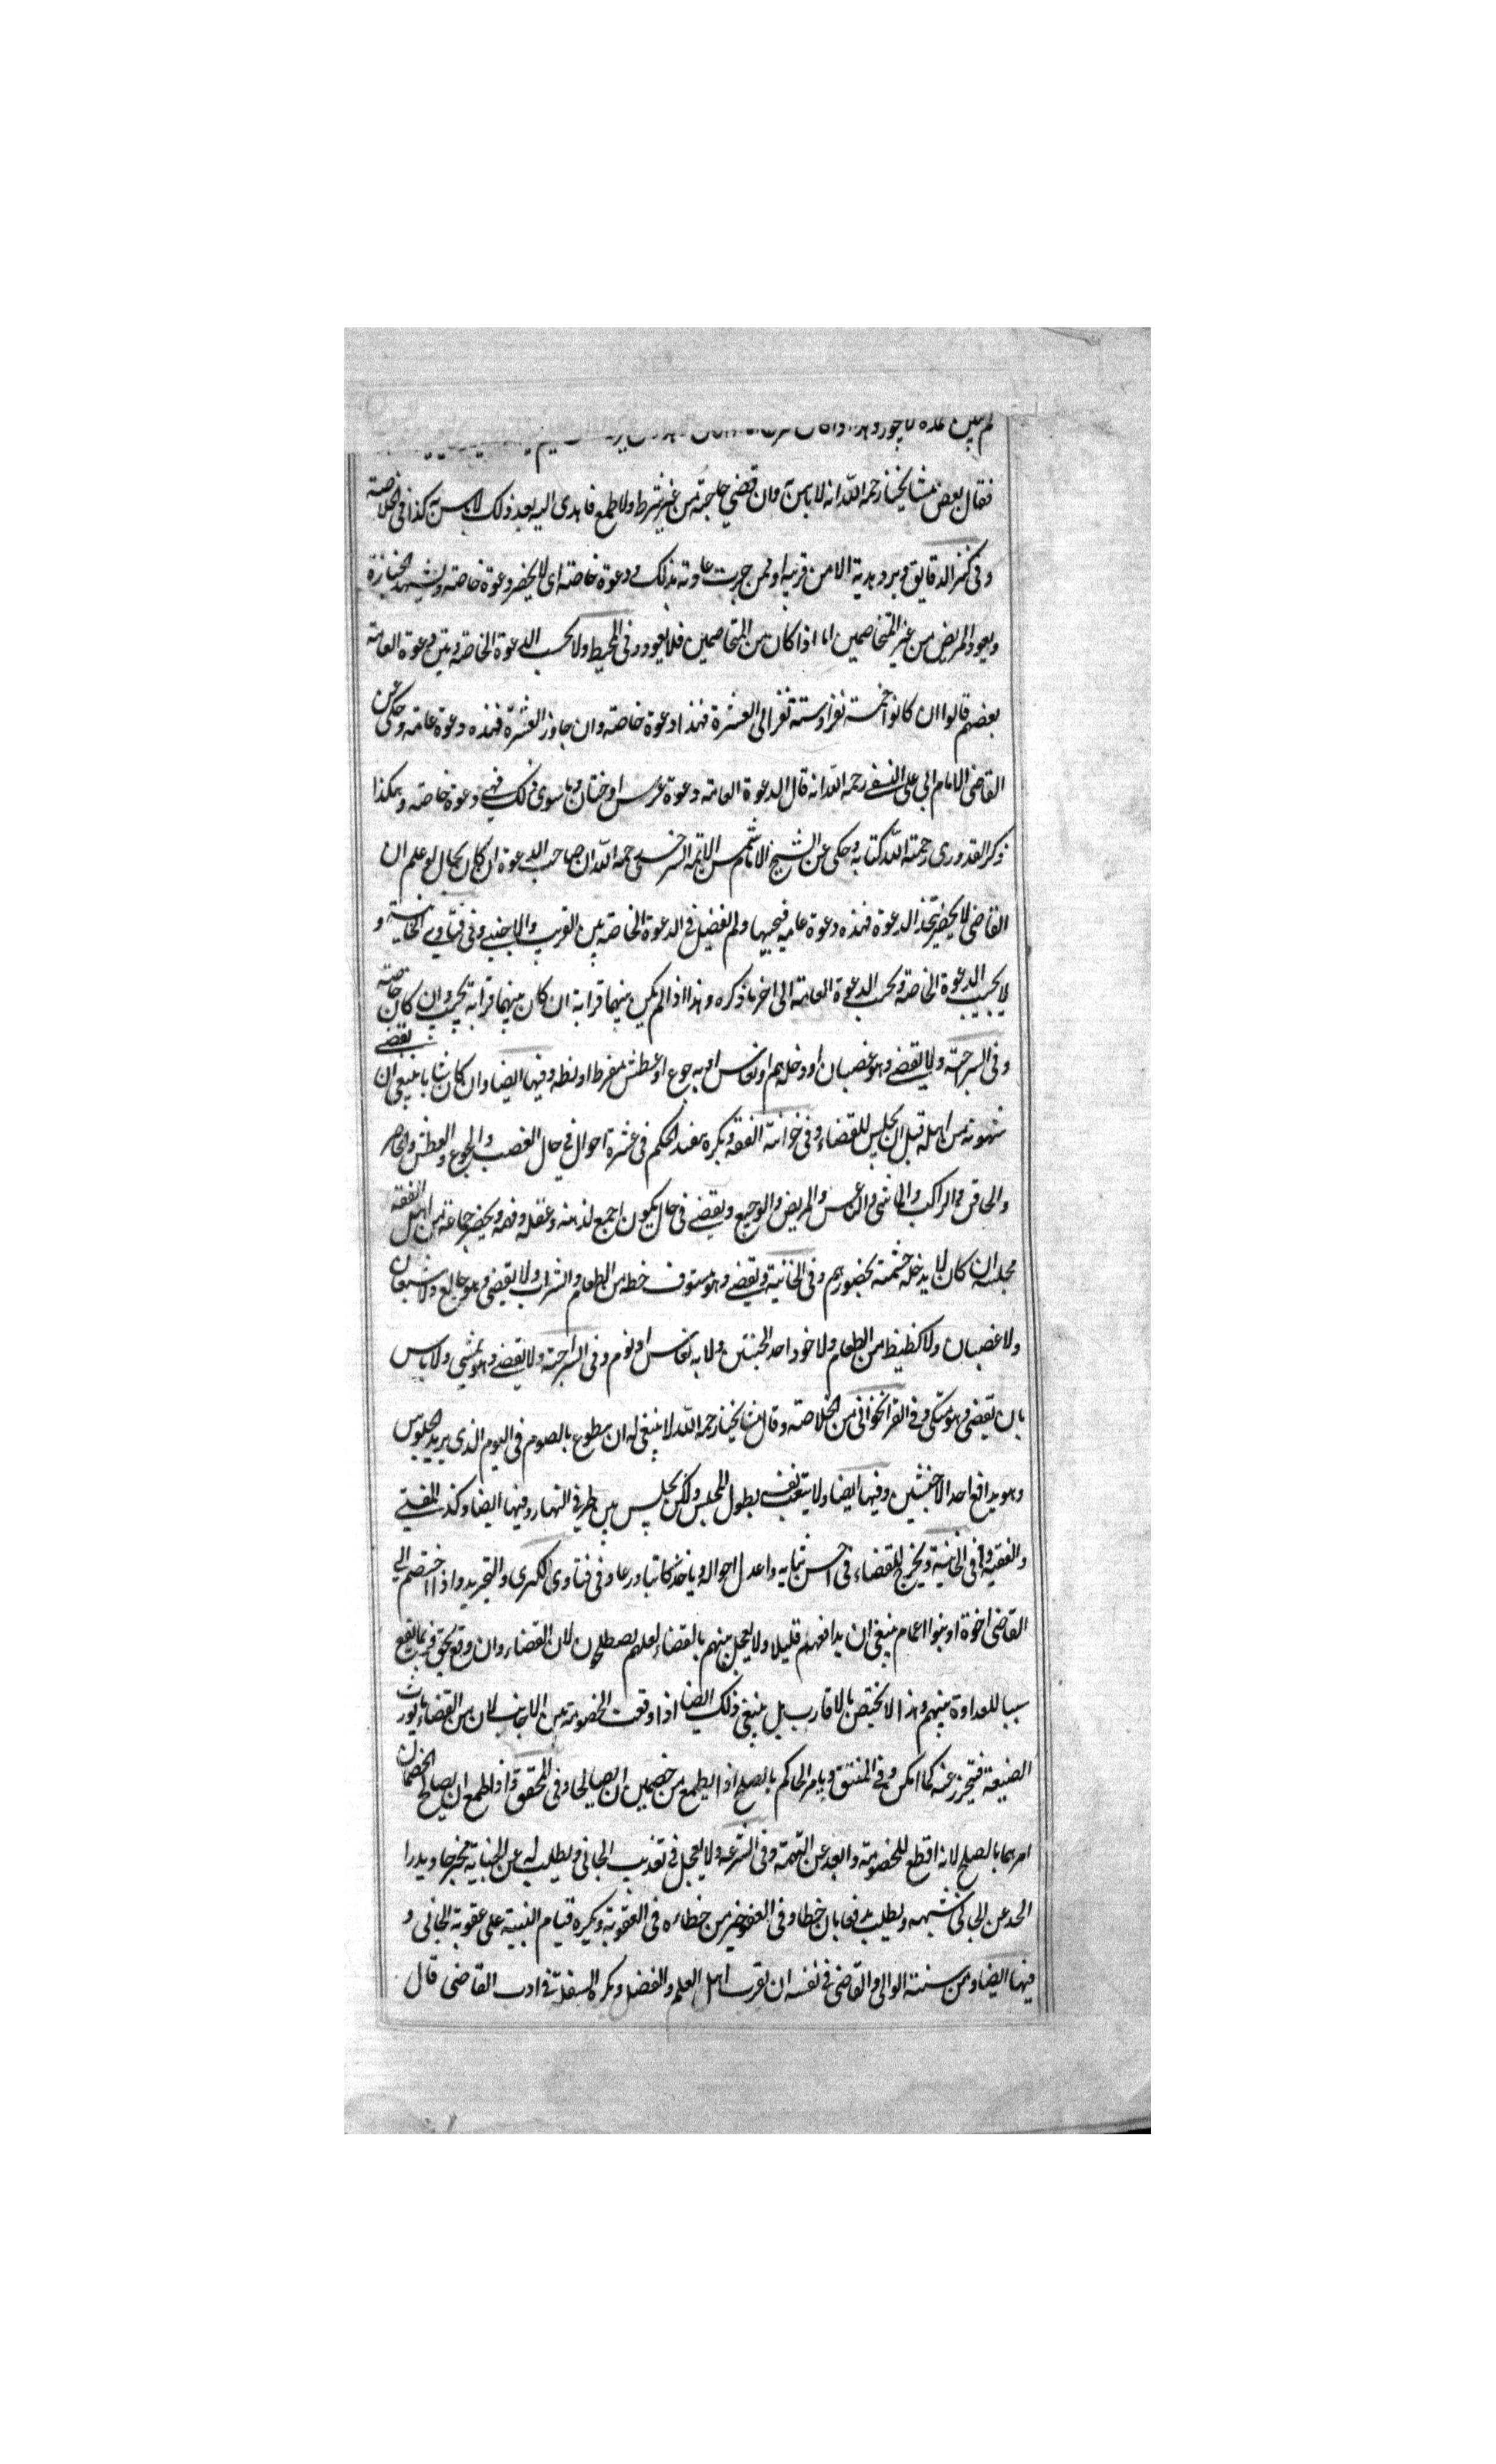 فقال بعض مشايخنا رحمه الله انه لا باس به وان قضي حاجته من غير شرط ولا طمع فاهدى اليه بعد ذلك لا باس به كذا في الخلاصة
وفي كنز الدقايق ويرد هدية الا من قريبه او ممن جرت عادته بذلك ودعوة خاصة اى لا يحضر دعوة خاصة ويشهد الجنازة
ويعود المريض من غير المتخاصمين اما اذا كان من المتخاصمين فلا يعود وفى المحيط ولا يجيب الدعوة الخاصة وبين دعوة العامة
بعضهم قالوا ان كانوا خمسة نفر او ستة نفر الى العشرة فهذا دعوة خاصة وان جاوز العشرة فهذه دعوة عامة وحكى عن
القاضى الامام ابي على النسفي رحمه الله انه قال الدعوة العامة دعوة عرس او ختان وما سوى ذلك فهي دعوة خاصة وهكذا
ذكر القدورى رحمة الله كتابه وحكى عن الشيخ الامام شمس الائمة السرخسي رحمه الله ان صاحب الدعوة ان كان بحال لو علم ان
القاضى لا يحضر يتخذ الدعوة فهذه دعوة عامية فيجيبها ولم يفصل في الدعوة الخاصة بين القريب والاجنبي وفى فتاوى الخانية و
لا يجيب الدعوة الخاصة ويجيب الدعوة العامة الى اخر ما ذكره وهذا اذا لم يكن بينهما قرابة ان كان بينهما قرابة يجيب وان كان خاصة
وفى السراجية ولا يقضي وهو غضبان او دخله هم او نعاس او به جوع او عطش مفرط او بطنه وفيها ايضا وان كان شابا ينبغى ان يقضي
شهوته من اهله قبل ان يجلس للقضاء وفى خزانة الفقه ويكره تنفيذ الحكم فى عشرة احوال في حال الغضب والجوع والعطش والحاصر
والحاقن والراكب والماشى والناعس والمريض والوجيع ويقضي فى حال يكون اجمع لذهنه وعقله وفهمه ويحضر جماعة من اهل الفقه
مجلسه ان كان لا يدخله حشمة بحضورهم وفى الخانية ويقضي وهو مستوف حظه من الطعام والشراب ولا يقضى وهو جايع ولا شبعان
ولا غضبان ولا كظيظ من الطعام ولا خود احد الجنبتين ولا به نعاس او نوم وفى السراجية ولا يقضي وهو يمشي ولا باس
بان يقضى وهو متكى وفى القراخوانى من الخلاصة وقال مشايخنا رحمه الله لا ينبغى له ان يتطوع بالصوم فى اليوم الذى يريد الجلوس
وهو يدافع احد الاخبثين وفيها ايضا ولا يتعب نفسه بطول المجلس ولكن يجلس بين طرفي النهار وفيها ايضا وكذلك المفتي
والفقيه وفى الخانية ويخرج للقضاء فى احسن ثيابه واعدل احواله وياخذ كاتبا ورعا وفى فتاوى الكبرى والتجريد واذا اختصم الى
القاضى اخوة او بنوا اعمام ينبغى ان يدافعهم قليلا ولا يعجل بينهم بالقضاء لعلهم يصطلحون لان القضاء وان وقع بحق فربما يقع
سببا للعداوة بينهم وهذا لا يختص بالاقارب بل ينبغى ذلك ايضا اذا وقعت الخصومة بين الاجانب لان من القضاء ما يورث
الضغينة فيتحرز عنه كما امكن وفى المنتقى ويامر الحاكم بالصلح اذا يطمع من خصمين ان يصالحا وفى المحقق واذا طمع ان يصالح الخصمان
امرهما بالصلح لانه اقطع للخصومة وابعد عن التهمة وفى الشرعة ولا يعجل في تعذيب الجانى ويطلب له عن الجناية مخرجا ويدرا
الحد عن الجانى شبهه ويطلب مدفعا بان خطا وفى العفو خير من خطاءه فى العقوبة ويكره قيام البينة على عقوبة الجانى و
فيها ايضا ومن سنة الوالى والقاضى في نفسه ان يقرب اهل العلم والفضل ويكره السفلة في ادب القاضى قال